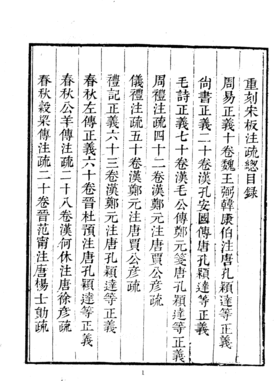 重刻宋板注疏總目錄
周易正義十卷魏王弼韓康伯注唐孔穎達等正義
尚書正義二十卷漢孔安國傳唐孔穎達等正義
毛詩正義七十卷漢毛公傳鄭元箋唐孔穎達等正義
周禮注疏四十二卷漢鄭元注唐賈公彥疏
儀禮注疏五十卷漢鄭元注唐賈公彥疏
禮記正義六十三卷漢鄭元注唐孔穎達等正義
春秋左傳正義六十卷晉杜預注唐孔穎達等正義
春秋公羊傳注疏二十八卷漢何休注唐徐彥疏
春秋穀梁傳注疏二十卷晉范甯注唐楊士勛疏
1